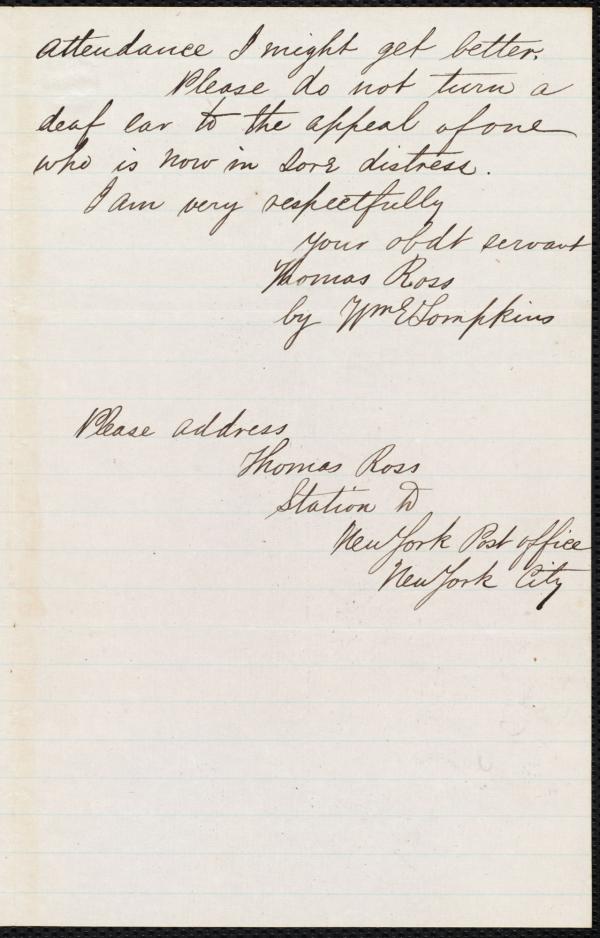 attendance I might get better.
Please do not turn a
deaf ear to the appeal of one
who is now in sore distress.
I am very respectfully
your obdt servant
Thomas Ross
by Wm E Tompkins
Please address
Thomas Ross
Station D
New York Post office
New York City